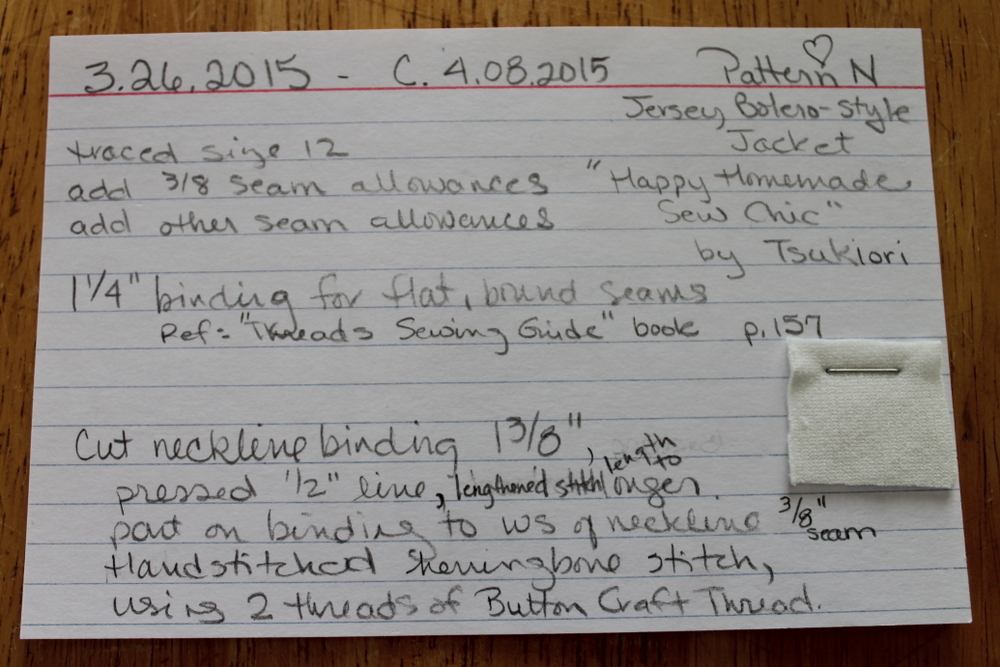 3.26.2015 - C. 4.08.2015 Pattern N
Jersey Bolero-style
Jacket
traced size 12
add 3/8 seam allowances "Happy Homemade
add other seam allowances Sew Chic"
by Tsukiori
1 1/4" binding for flat, bound seams
Ref: "Threads Sewing Guide" book p.157
Cut neckline binding 1 3/8",
pressed 1/2" line, lengthened stitch length to longer.
part on binding to WS of neckline 3/8" seam
Handstitched herringbone stitch,
using 2 threads of Button Craft Thread.